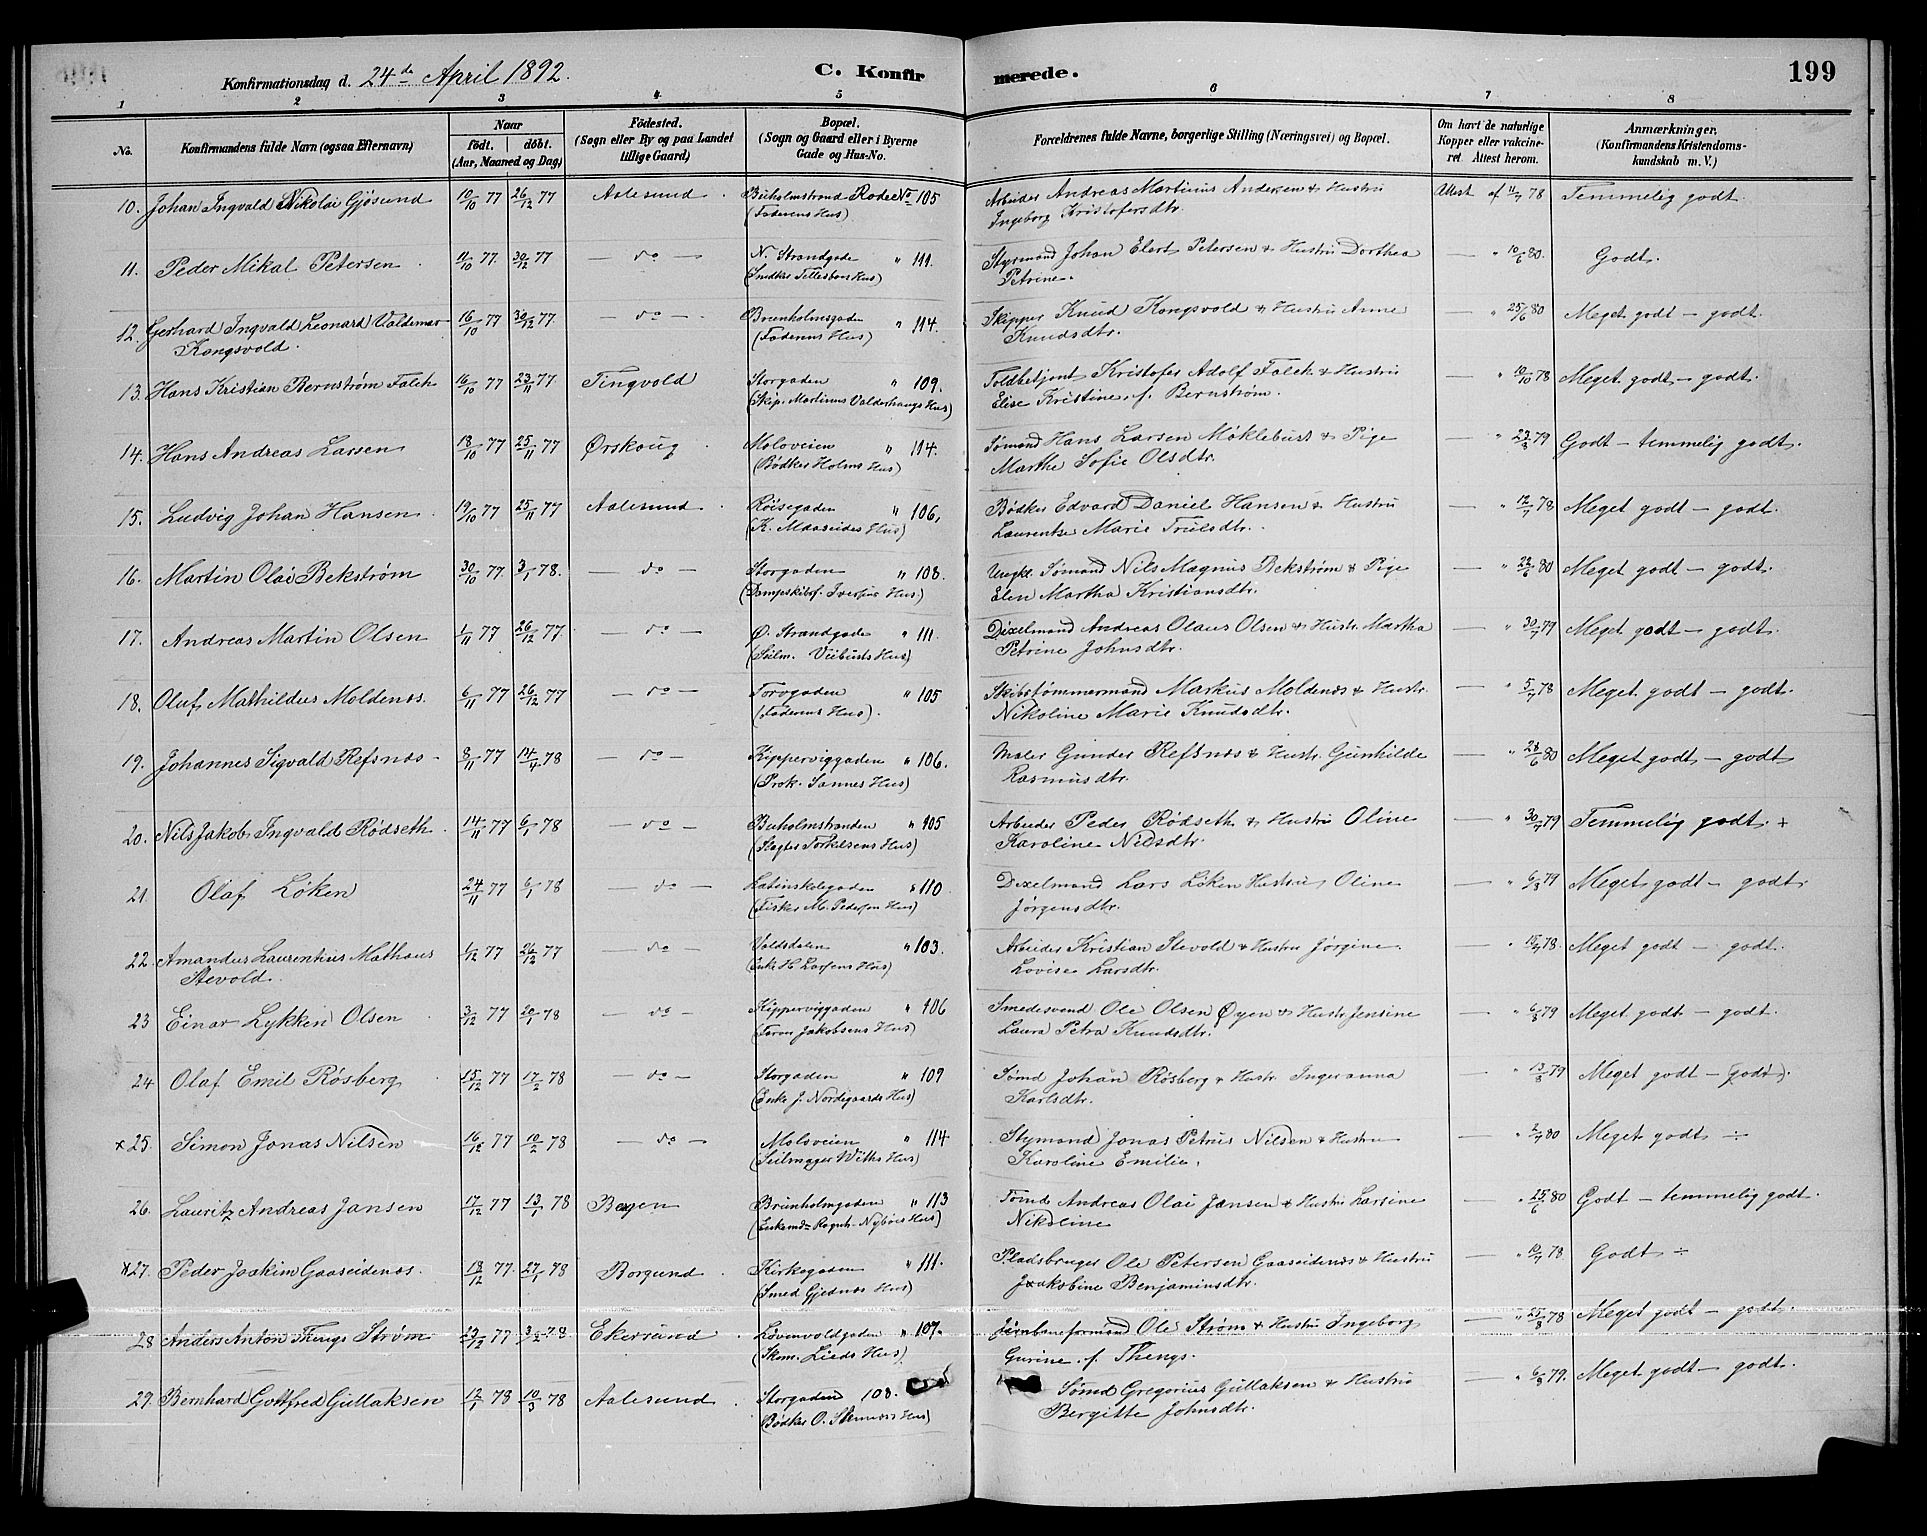 Konfirmationsdag d. 24de April 1892. C. Konfirmerede. 199
1 2 3 4 5 6 7 8
No. Konfirmandens fulde Navn (ogsaa Efternavn) Naar født. døbt. (Aar, Maaned og Dag) Födested. (Sogn eller By og paa Landet tillige Gaard) Bopæl. (Sogn og Gaard eller i Byerne Gade og Hus-No. Forældrenes fulde Navne, borgerlige Stilling (Næringsvei) og Bopæl. Om havt de naturlige Kopper eller vakcineret Attest herom. Anmærkninger. (Konfirmandens Kristendomskundskab m. V.)
10. Johan Ingvald Nikolai Gjøsund 10/10 77 26/12 77 Aalesund Buholmstrand Rode No 105 Arbeider Andreas Martinus Andersen & Hustru Attest af 11/7 78 Temmelig godt.
(Faderens Hus) Ingeborg Kristofersdtr.
11. Peder Mikal Petersen 11/10 77. 30/12 77 — do — N. Strandgade " 111. Styrmand Johan Elert Petersen & Hustru Dorthea — " 10/6 80. Godt.
(Snedker Tellefsens Hus) Petrine.
12. Gerhard Ingvald Leonard Valdemar 16/10 77 30/12 77 — do — Brunholmgaden " 114. Skipper Knud Kongsvold & Hustru Anne — " 25/6 80 Meget godt — godt.
Kongsvold. (Faderens Hus) Knudsdtr.
13. Hans Kristian Bernstrøm Falch 16/10 77 23/11 77 Tingvold Storgaden " 109. Toldbetjent Kristofer Adolf Falch & Hustru — " 10/10 78 Meget godt — godt.
(Skip. Martinus Valderhaugs Hus) Elise Kristine f. Bernstrøm.
14. Hans Andreas Larsen 18/10 77 25/11 77 Ørskoug Moloveien " 114. Sømand Hans Larsen Møklebust & Pige — " 23/8 79 Godt — temmelig godt.
(Bødker Holms Hus) Marthe Sofie Olsdtr.
15. Ludvig Johan Hansen 19/10 77 25/11 77 Aalesund Røisegaden " 106. Bødker Edvard Daniel Hansen & Hustru — " 12/7 78 Meget godt — godt.
(K. Maaseides Hus) Laurentse Marie Truelsdtr.
16. Martin Olai Bekstrøm 30/10 77. 3/1 78. — do — Storgaden " 108. Ungkl. Sømand Nils Magnus Bekstrøm & Pige — " 22/6 80 Meget godt — godt.
(Dampskibsf. Iversens Hus) Elen Martha Kristiansdtr.
17. Andreas Martin Olsen 1/11 77 26/12 77. — do — Ø. Strandgade " 111. Dixelmand Andreas Olaus Olsen & Hustr. Martha — " 30/7 79 Meget godt — godt.
(Seilm. Viibusts Hus) Petrine Johnsdtr.
18. Oluf Mathildus Moldenæs. 6/11 77 26/12 77 — do — Torvgaden " 105 Skibstømmermand Markus Moldenæs & Hustr. — " 5/7 78 Meget godt — godt.
(Faderens Hus). Nikoline Marie Knudsdtr.
19. Johannes Sigvald Refsnæs 8/11 77 14/4 78 — do — Kipperviggaden " 106. Maler Gunder Refsnæs & Hustr. Gunhilde — " 28/6 80 Meget godt — godt
(Prok. Sannes Hus) Rasmusdtr.
20. Nils Jakob Ingvald Rødseth 14/11 77 6/1 78 — do — Buholmstranden " 105 Arbeider Peder Rødseth & Hustru Oline — " 30/7 79 Temmelig godt +
(Slagter Torkelsens Hus) Karoline Nilsdtr.
21 Olaf Løken 24/11 77 6/1 78 — do — Latinskolegaden " 110 Dixelmand Lars Løken Hustru Oline — " 6/8 79 Meget godt — godt
(Fisker M. Pedersen Hus) Jørgensdtr.
22. Amandus Laurentius Mathæus 1/12 77 26/12 77 — do — Voldsdalen " 103. Arbeider Kristian Stevold & Hustru Jørgine " 15/7 78. Meget godt — godt.
Stevold. (Enke H. Larsens Hus) Lovise Larsdtr.
23 Einar Lykken Olsen 3/12 77 20/1 78 — do — Kipperviggaden " 106 Smedesvend Ole Olsen Øyen & Hustr. Jensine " 6/8 79 Meget godt — godt.
Laura Petra Knudsdtr.
24 Olaf Emil Røsberg 15/12 77 17/2 78 — do — Storgaden " 109 Sømd Johan Røsberg & Hustr. Ingeranna " 13/8 79 Meget godt — godt.
(Enke J. Nordegaards Hus) Karlsdtr.
x 25. Simon Jonas Nilsen 16/12 77 10/2 78 — do — Moloveien " 114 Stymand Jonas Petrus Nilsen & Hustru — " 2/7 80 Meget godt ÷
(Seilmager Withs Hus) Karoline Emilie.
26. Lauritz Andreas Jansen 17/12 77 13/1 78 Bergen Brunholmgaden " 113 Tømd Andreas Olai Jansen & Hustru Larsine " 25/6 80 Godt — temmelig godt.
Nikoline
x 27. Peder Joakim Gaaseidenæs. 18/12 77. 27/1 78 Borgund Kirkegaden " 111. Pladsbruger Ole Petersen Gaaseidenæs & Hustru — " 10/7 78 Godt ÷
(Smed Gjednæs Hus) Jakobine Benjaminsdtr.
28 Anders Anton Thengs Strøm 23/12 77 3/2 78 Ekersund Løvenvoldgaden " 107. Jernbaneformand Ole Strøm & Hustru Ingeborg " 25/8 78 Meget godt — godt.
(Skom. Lieds Hus) Gurine f. Thengs.
29. Bernhard Gottfred Gullaksen 12/1 78 10/3 78 Aalesund Storgaden 108. Sømd Gregorius Gullaksen & Hustru — " 6/8 79. Meget godt — godt.
(Bødker O. Hus) Bergitte Johnsdtr.